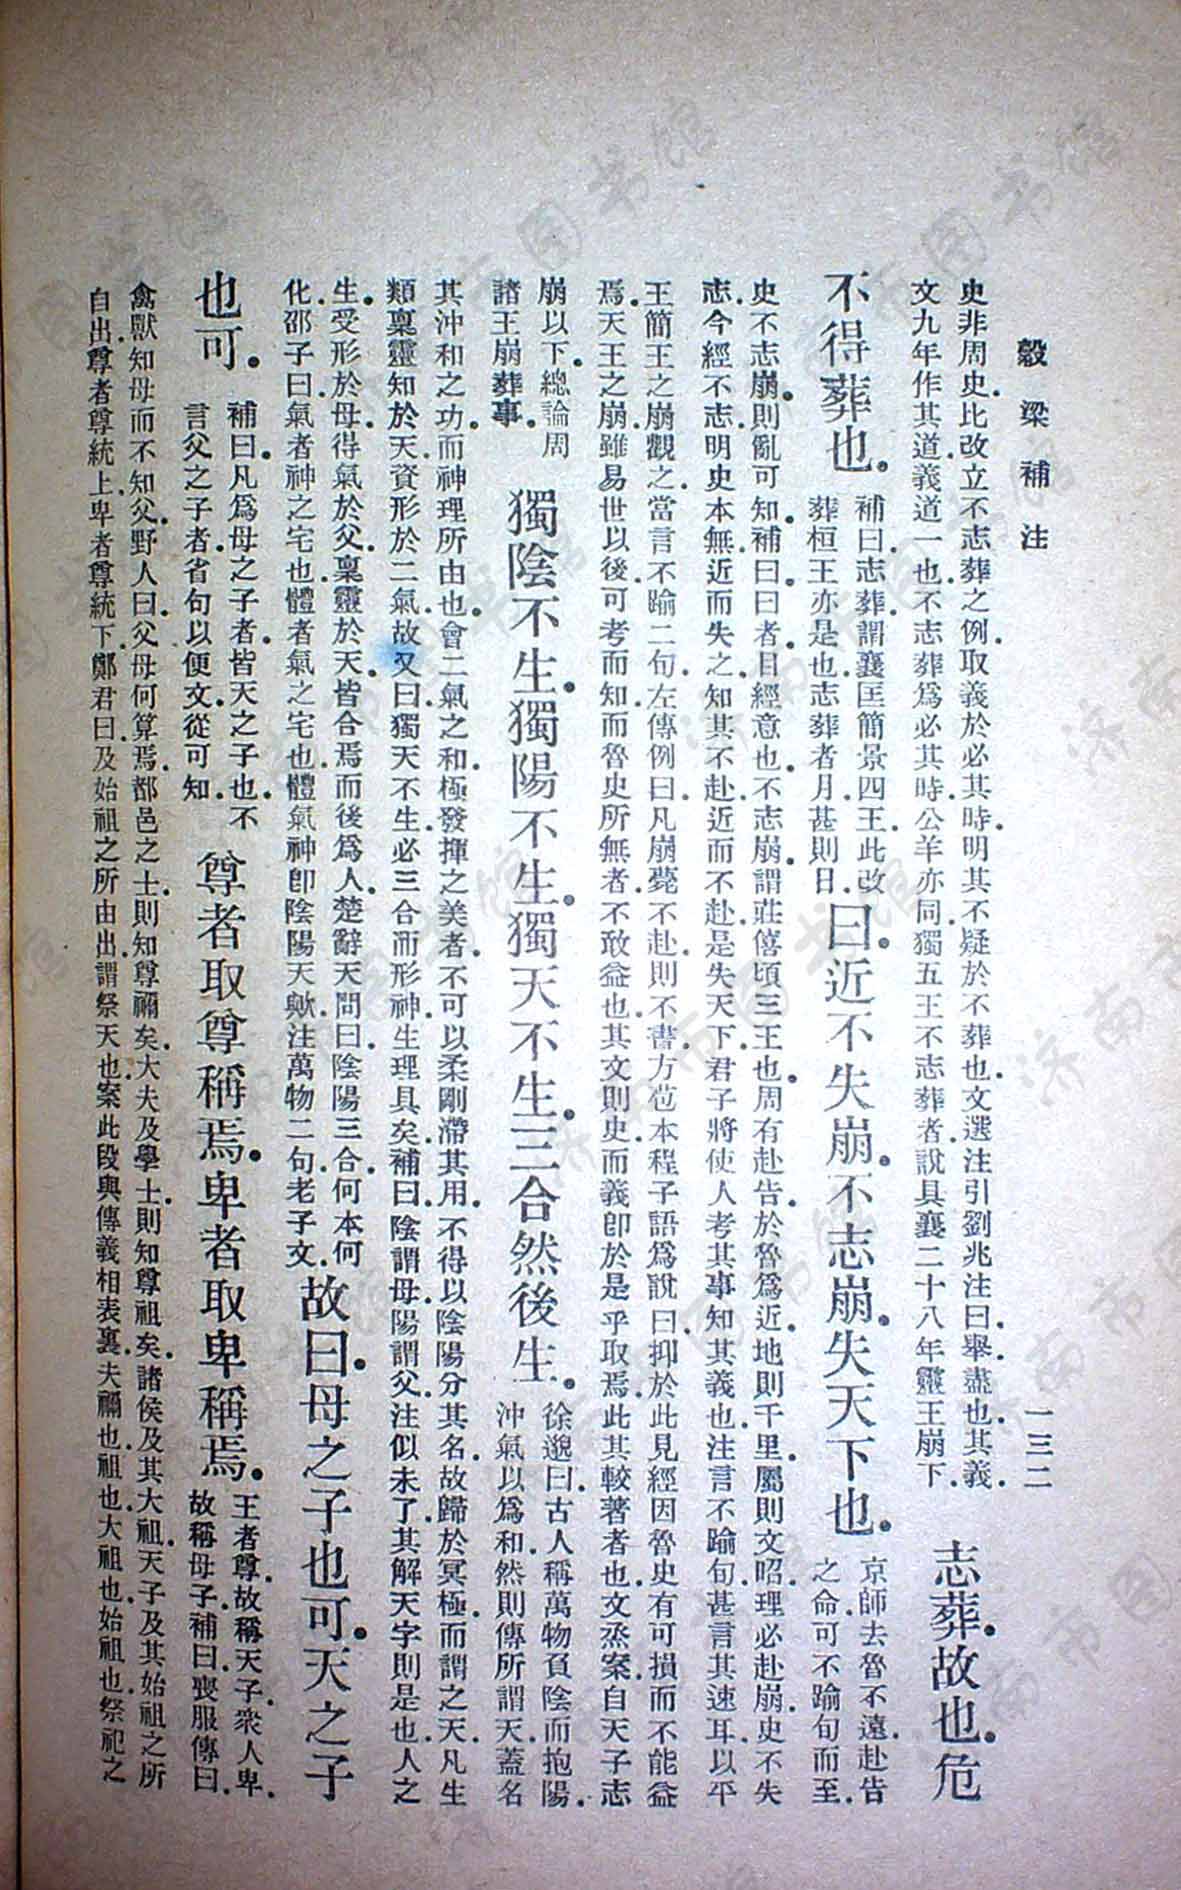 穀梁補注　一三二
史非周史比改立不志葬之例取義於必其時明其不疑於不葬也文選注引劉兆注曰舉盡也其義
文九年作其道義道一也不志葬爲必其時公羊亦同獨五王不志葬者說具襄二十八年靈王崩下
志葬故也危
不得葬也
補曰志葬謂襄匡簡景四王此改
葬桓王亦是也志葬者月甚則日
曰近不失崩不志崩失天下也
京師去魯不遠赴告
之命可不踰旬而至
史不志崩則亂可知補曰曰者目經意也不志崩謂莊僖頃三王也周有赴告於魯爲近地則千里屬則文昭理必赴崩史不失
志今經不志明史本無近而失之知其不赴近而不赴是失天下君子將使人考其事知其義也注言不踰旬甚言其速耳以平
王簡王之崩觀之當言不踰二旬左傳例曰凡崩薨不赴則不書方苞本程子語爲說曰抑於此見經因魯史有可損而不能益
焉天王之崩雖易世以後可考而知而魯史所無者不敢益也其文則史而義卽於是乎取焉此其較著者也文烝案自天子志
崩以下總論周
諸王崩葬事
獨陰不生獨陽不生獨天不生三合然後生
徐邈曰古人稱萬物負陰而抱陽
沖氣以爲和然則傳所謂天蓋名
其沖和之功而神理所由也會二氣之和極發揮之美者不可以柔剛滯其用不得以陰陽分其名故歸於冥極而謂之天凡生
類稟靈知於天資形於二氣故又曰獨天不生必三合而形神生理具矣補曰陰謂母陽謂父注似未了其解天字則是也人之
生受形於母得氣於父稟靈於天皆合焉而後爲人楚辭天問曰陰陽三合何本何
化邵子曰氣者神之宅也體者氣之宅也體氣神卽陰陽天歟注萬物二句老子文
故曰母之子也可天之子
也可
補曰凡爲母之子者皆天之子也不
言父之子者省句以便文從可知
尊者取尊稱焉卑者取卑稱焉
王者尊故稱天子衆人卑
故稱母子補曰喪服傳曰
禽獸知母而不知父野人曰父母何算焉都邑之士則知尊禰矣大夫及學士則知尊祖矣諸侯及其大祖天子及其始祖之所
自出尊者尊統上卑者尊統下鄭君曰及始祖之所由出謂祭天也案此段與傳義相表裏夫禰也祖也大祖也始祖也祭祀之